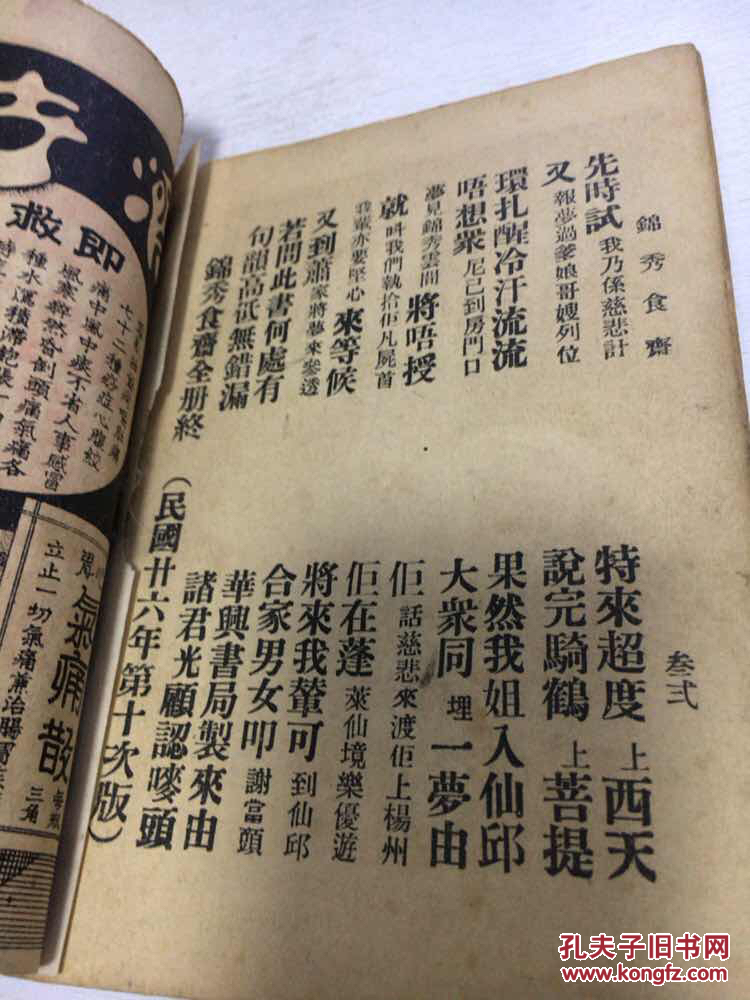 錦秀食齋
叁弍
先時試我乃係慈悲計 特來超度上西天
又報夢過爹娘哥嫂列位 說完騎鶴上菩提
環扎醒冷汗流流 果然我姐入仙邱
唔想衆尼已到房門口 大衆同埋一夢由
夢見錦秀雲間將唔授 佢話慈悲來渡佢上楊州
就呌我們執拾佢凡屍首 佢在蓬萊仙境樂優遊
我輩亦要堅心來等候 將來我輩可到仙邱
又到蕭家將夢來參透 合家男女叩謝當頭
若問此書何處有 華興書局製來由
句韻高低無錯漏 諸君光顧認嘜頭
錦秀食齋全册終 (民國廿六年第十次版)
即救
七十二種痧症心腹絞
痛中風中痰不省人事感冒
風寒猝然昏倒頭痛氣痛各
種水瀉積滯飽脹
氣痛散
每瓶三角
立止一切氣痛兼治腸胃
孔夫子旧书网
www.kongfz.com